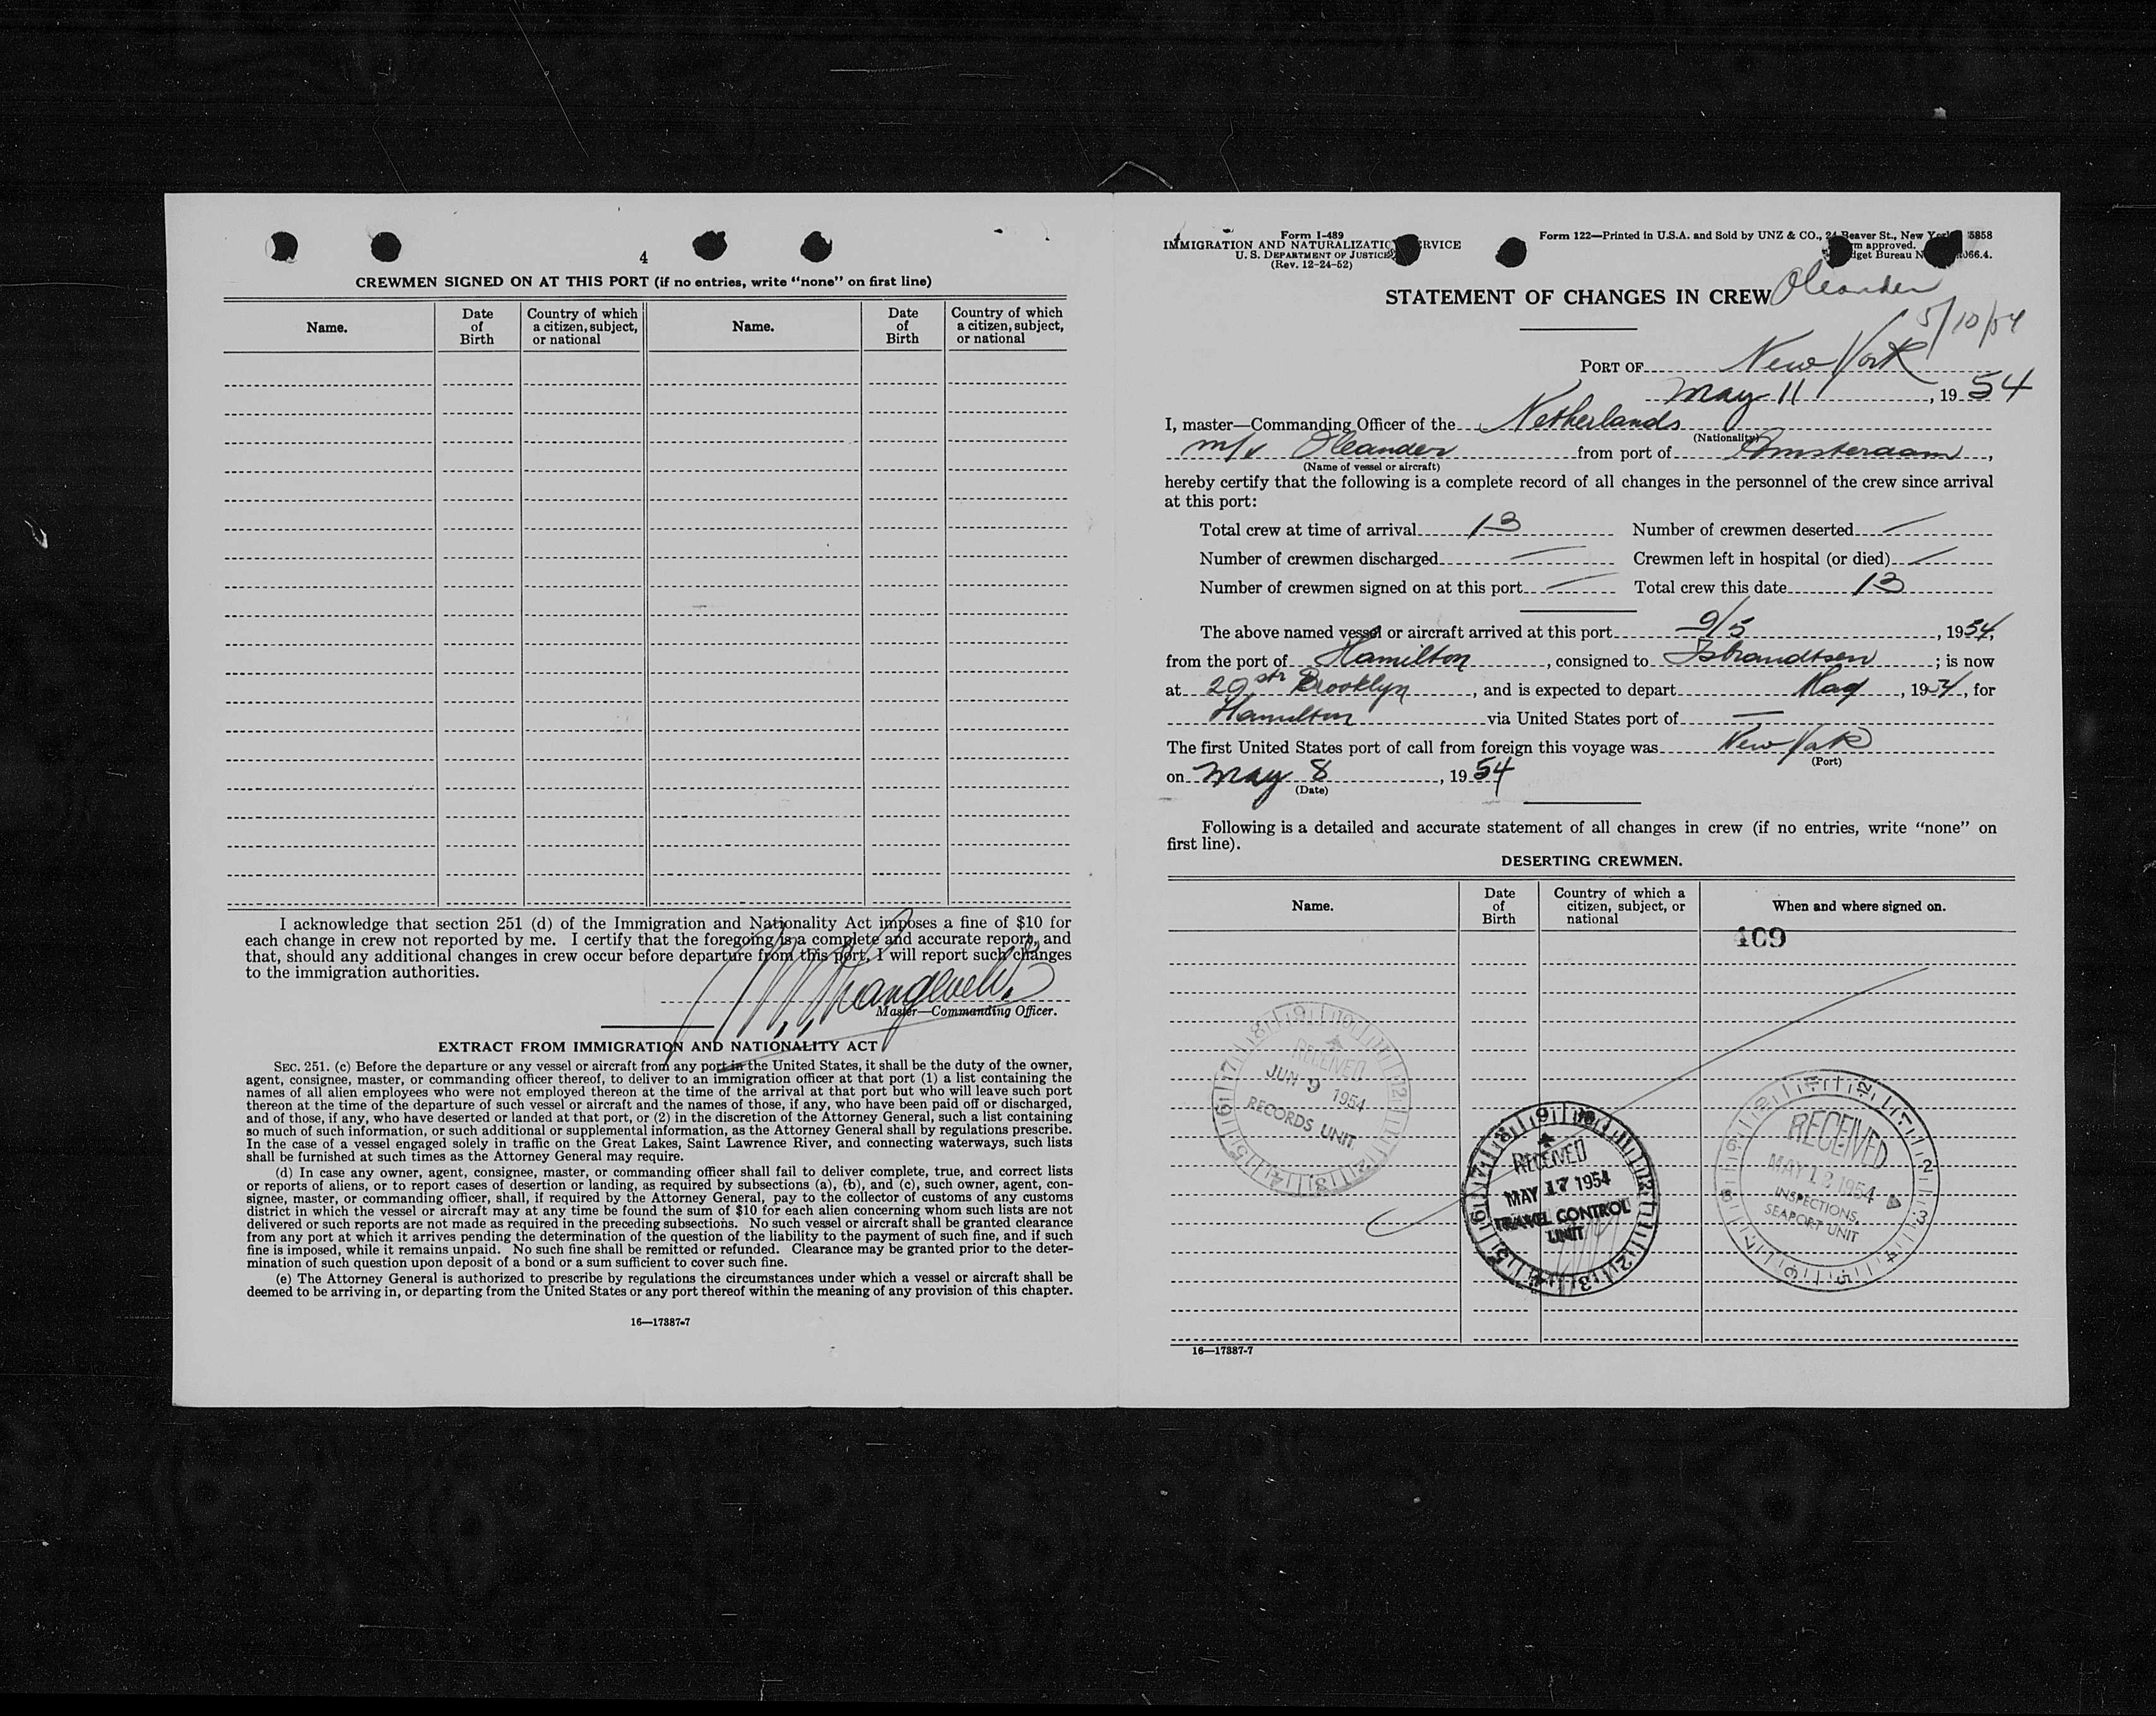 4
CREWMEN SIGNED ON AT THIS PORT (if no entries, write "none" on first line)
Name. Date of Birth Country of which a citizen, subject, or national Name. Date of Birth Country of which a citizen, subject, or national
I acknowledge that section 251 (d) of the Immigration and Nationality Act imposes a fine of $10 for
each change in crew not reported by me. I certify that the foregoing is a complete and accurate report, and
that, should any additional changes in crew occur before departure from this port, I will report such changes
to the immigration authorities.
Master—Commanding Officer.
EXTRACT FROM IMMIGRATION AND NATIONALITY ACT
SEC. 251. (c) Before the departure or any vessel or aircraft from any port in the United States, it shall be the duty of the owner,
agent, consignee, master, or commanding officer thereof, to deliver to an immigration officer at that port (1) a list containing the
names of all alien employees who were not employed thereon at the time of the arrival at that port but who will leave such port
thereon at the time of the departure of such vessel or aircraft and the names of those, if any, who have been paid off or discharged,
and of those, if any, who have deserted or landed at that port, or (2) in the discretion of the Attorney General, such a list containing
so much of such information, or such additional or supplemental information, as the Attorney General shall by regulations prescribe.
In the case of a vessel engaged solely in traffic on the Great Lakes, Saint Lawrence River, and connecting waterways, such lists
shall be furnished at such times as the Attorney General may require.
(d) In case any owner, agent, consignee, master, or commanding officer shall fail to deliver complete, true, and correct lists
or reports of aliens, or to report cases of desertion or landing, as required by subsections (a), (b), and (c), such owner, agent, con-
signee, master, or commanding officer, shall, if required by the Attorney General, pay to the collector of customs of any customs
district in which the vessel or aircraft may at any time be found the sum of $10 for each alien concerning whom such lists are not
delivered or such reports are not made as required in the preceding subsections. No such vessel or aircraft shall be granted clearance
from any port at which it arrives pending the determination of the question of the liability to the payment of such fine, and if such
fine is imposed, while it remains unpaid. No such fine shall be remitted or refunded. Clearance may be granted prior to the deter-
mination of such question upon deposit of a bond or a sum sufficient to cover such fine.
(e) The Attorney General is authorized to prescribe by regulations the circumstances under which a vessel or aircraft shall be
deemed to be arriving in, or departing from the United States or any port thereof within the meaning of any provision of this chapter.
16—17387-7
Form I-489
IMMIGRATION AND NATURALIZATIO RVICE
U. S. DEPARTMENT OF JUSTICE
(Rev. 12-24-52)
Form 122—Printed in U.S.A. and Sold by UNZ & CO., 24 Beaver St., New York 5858
rm approved.
dget Bureau N 066.4.
STATEMENT OF CHANGES IN CREW Oleander
5/10/54
PORT OF New York
May 11, 1954
I, master—Commanding Officer of the Netherlands
(Nationality)
m/v Oleander from port of Amsterdam,
(Name of vessel or aircraft)
hereby certify that the following is a complete record of all changes in the personnel of the crew since arrival
at this port:
Total crew at time of arrival 13 Number of crewmen deserted —
Number of crewmen discharged — Crewmen left in hospital (or died) —
Number of crewmen signed on at this port — Total crew this date 13
The above named vessel or aircraft arrived at this port 9/5, 1954,
from the port of Hamilton, consigned to Isbrandtsen; is now
at 29 str Brooklyn, and is expected to depart May, 1954, for
Hamilton via United States port of —
The first United States port of call from foreign this voyage was New York
(Port)
on May 8, 1954
(Date)
Following is a detailed and accurate statement of all changes in crew (if no entries, write "none" on
first line).
DESERTING CREWMEN.
Name. Date of Birth Country of which a citizen, subject, or national When and where signed on.
409
RECEIVED
JUN 9 1954
RECORDS UNIT
RECEIVED
MAY 17 1954
TRAVEL CONTROL
UNIT
RECEIVED
MAY 12 1954
INSPECTIONS,
SEAPORT UNIT
16—17387-7